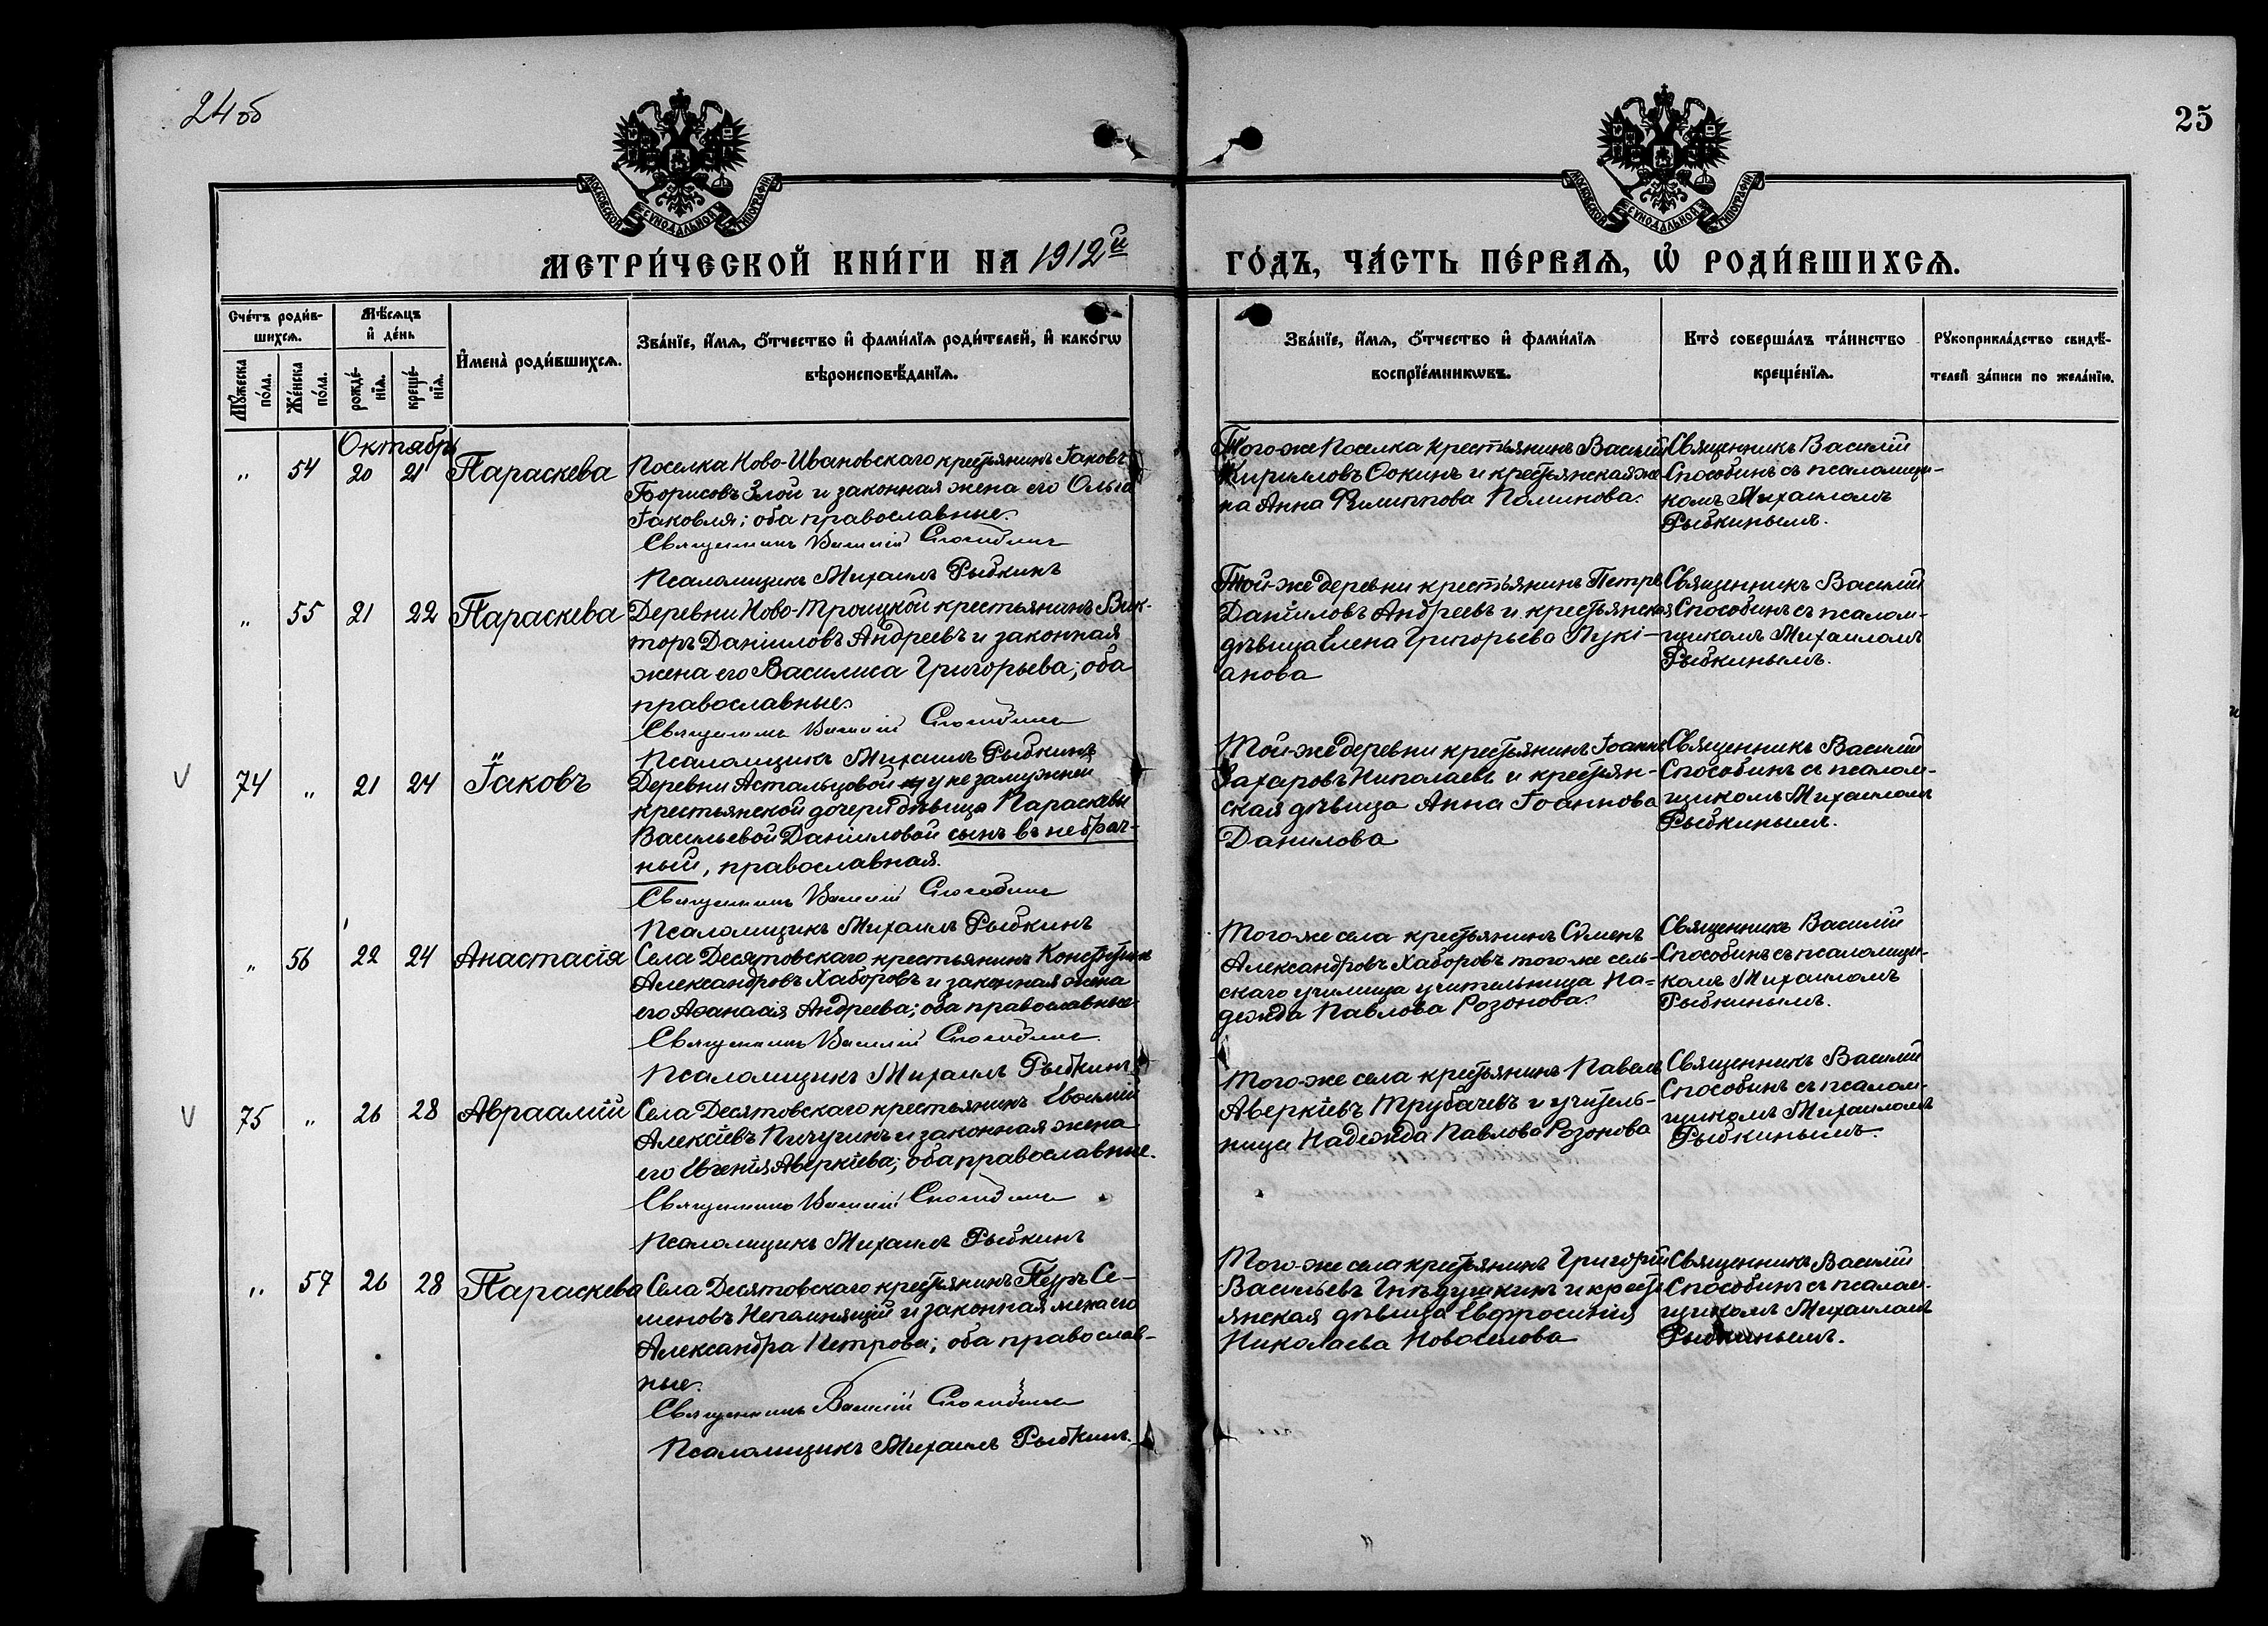 24 об
25
МОСКОВСКОЙ СѴНОДАЛЬНОЙ ТИПОГРАФІИ
МОСКОВСКОЙ СѴНОДАЛЬНОЙ ТИПОГРАФІИ
МЕТРИ́ЧЕСКОЙ КНИ́ГИ НА 1912й
ГО́ДЪ, ЧА́СТЬ ПЕ́РВАѦ, Ѡ҆ РОДИ́ВШИХСѦ.
Сче́тъ роди́в-
шихсѧ.
Мѣ́сѧцъ
и҆ де́нь
Мꙋ́жеска
по́ла.
Же́нска
по́ла.
рожде́-
нїѧ.
креще́-
нїѧ.
И҆мена̀ роди́вшихсѧ.
Зва́нїе, и҆́мѧ, ѻ҆́тчество и҆ фами́лїѧ роди́телей, и҆ како́гѡ
вѣроисповѣ́данїѧ.
Зва́нїе, и҆́мѧ, ѻ҆́тчество и҆ фами́лїѧ
воспрїе́мникѡвъ.
Кто̀ соверша́лъ та́инство
креще́нїѧ.
Рꙋкоприкла́дство свидѣ́-
телей за́писи по жела́нїю.
Октябрь
" 54 20 21 Параскева
Поселка Ново-Ивановскаго крестьянинъ Іаковъ
Борисовъ Злой и законная жена его Ольга
Іаковля; оба православные.
Священникъ Василій Способинъ
Псаломщикъ Михаилъ Рыбкинъ
Того-же поселка крестьянинъ Василій
Кирилловъ Сокинъ и крестьянская же-
на Анна Филиппова Поминова.
Священникъ Василій
Способинъ съ псаломщи-
комъ Михаиломъ
Рыбкинымъ.
" 55 21 22 Параскева
Деревни Ново-Троицкой крестьянинъ Вик-
торъ Даніиловъ Андреевъ и законная
жена его Василиса Григорьева; оба
православные.
Священникъ Василій Способинъ
Псаломщикъ Михаилъ Рыбкинъ
Той-же деревни крестьянинъ Петръ
Даніиловъ Андреевъ и крестьянская
дѣвица Елена Григорьева Пукі-
анова
Священникъ Василій
Способинъ съ псалом-
щикомъ Михаиломъ
Рыбкинымъ.
74 " 21 24 Іаковъ
Деревни Астальцовой у незамужней
крестьянской дочери дѣвицы Параскевы
Васильевой Даніиловой сынъ внебрач-
ный, православная.
Священникъ Василій Способинъ
Псаломщикъ Михаилъ Рыбкинъ
Той-же деревни крестьянинъ Іоаннъ
Захаровъ Николаевъ и крестьян-
ская дѣвица Анна Іоаннова
Данилова
Священникъ Василій
Способинъ съ псалом-
щикомъ Михаиломъ
Рыбкинымъ.
" 56 22 24 Анастасія
Села Десятовскаго крестьянинъ Константинъ
Александровъ Хаборовъ и законная жена
его Аѳанасія Андреева; оба православные.
Священникъ Василій Способинъ
Псаломщикъ Михаилъ Рыбкинъ
Того-же села крестьянинъ Сѵменъ
Александровъ Хаборовъ того-же сель-
скаго училища учительница На-
дежда Павлова Розонова.
Священникъ Василій
Способинъ съ псаломщи-
комъ Михаиломъ
Рыбкинымъ.
75 " 26 28 Авраамій
Села Десятовскаго крестьянинъ Евѳимій
Алексіевъ Пичугинъ и законная жена
его Евгенія Аверкіева; оба православные.
Священникъ Василій Способинъ
Псаломщикъ Михаилъ Рыбкинъ
Того-же села крестьянинъ Павелъ
Аверкіевъ Трубачевъ и учитель-
ница Надежда Павлова Розонова
Священникъ Василій
Способинъ съ псалом-
щикомъ Михаиломъ
Рыбкинымъ.
" 57 26 28 Параскева
Села Десятовскаго крестьянинъ Петръ Се-
меновъ Непомнящій и законная жена его
Александра Петрова; оба православ-
ные.
Священникъ Василій Способинъ
Псаломщикъ Михаилъ Рыбкинъ.
Того-же села крестьянинъ Григорій
Васильевъ Гнѣдушкинъ и кресть-
янская дѣвица Евфросинія
Николаева Новоселова
Священникъ Василій
Способинъ съ псалом-
щикомъ Михаиломъ
Рыбкинымъ.